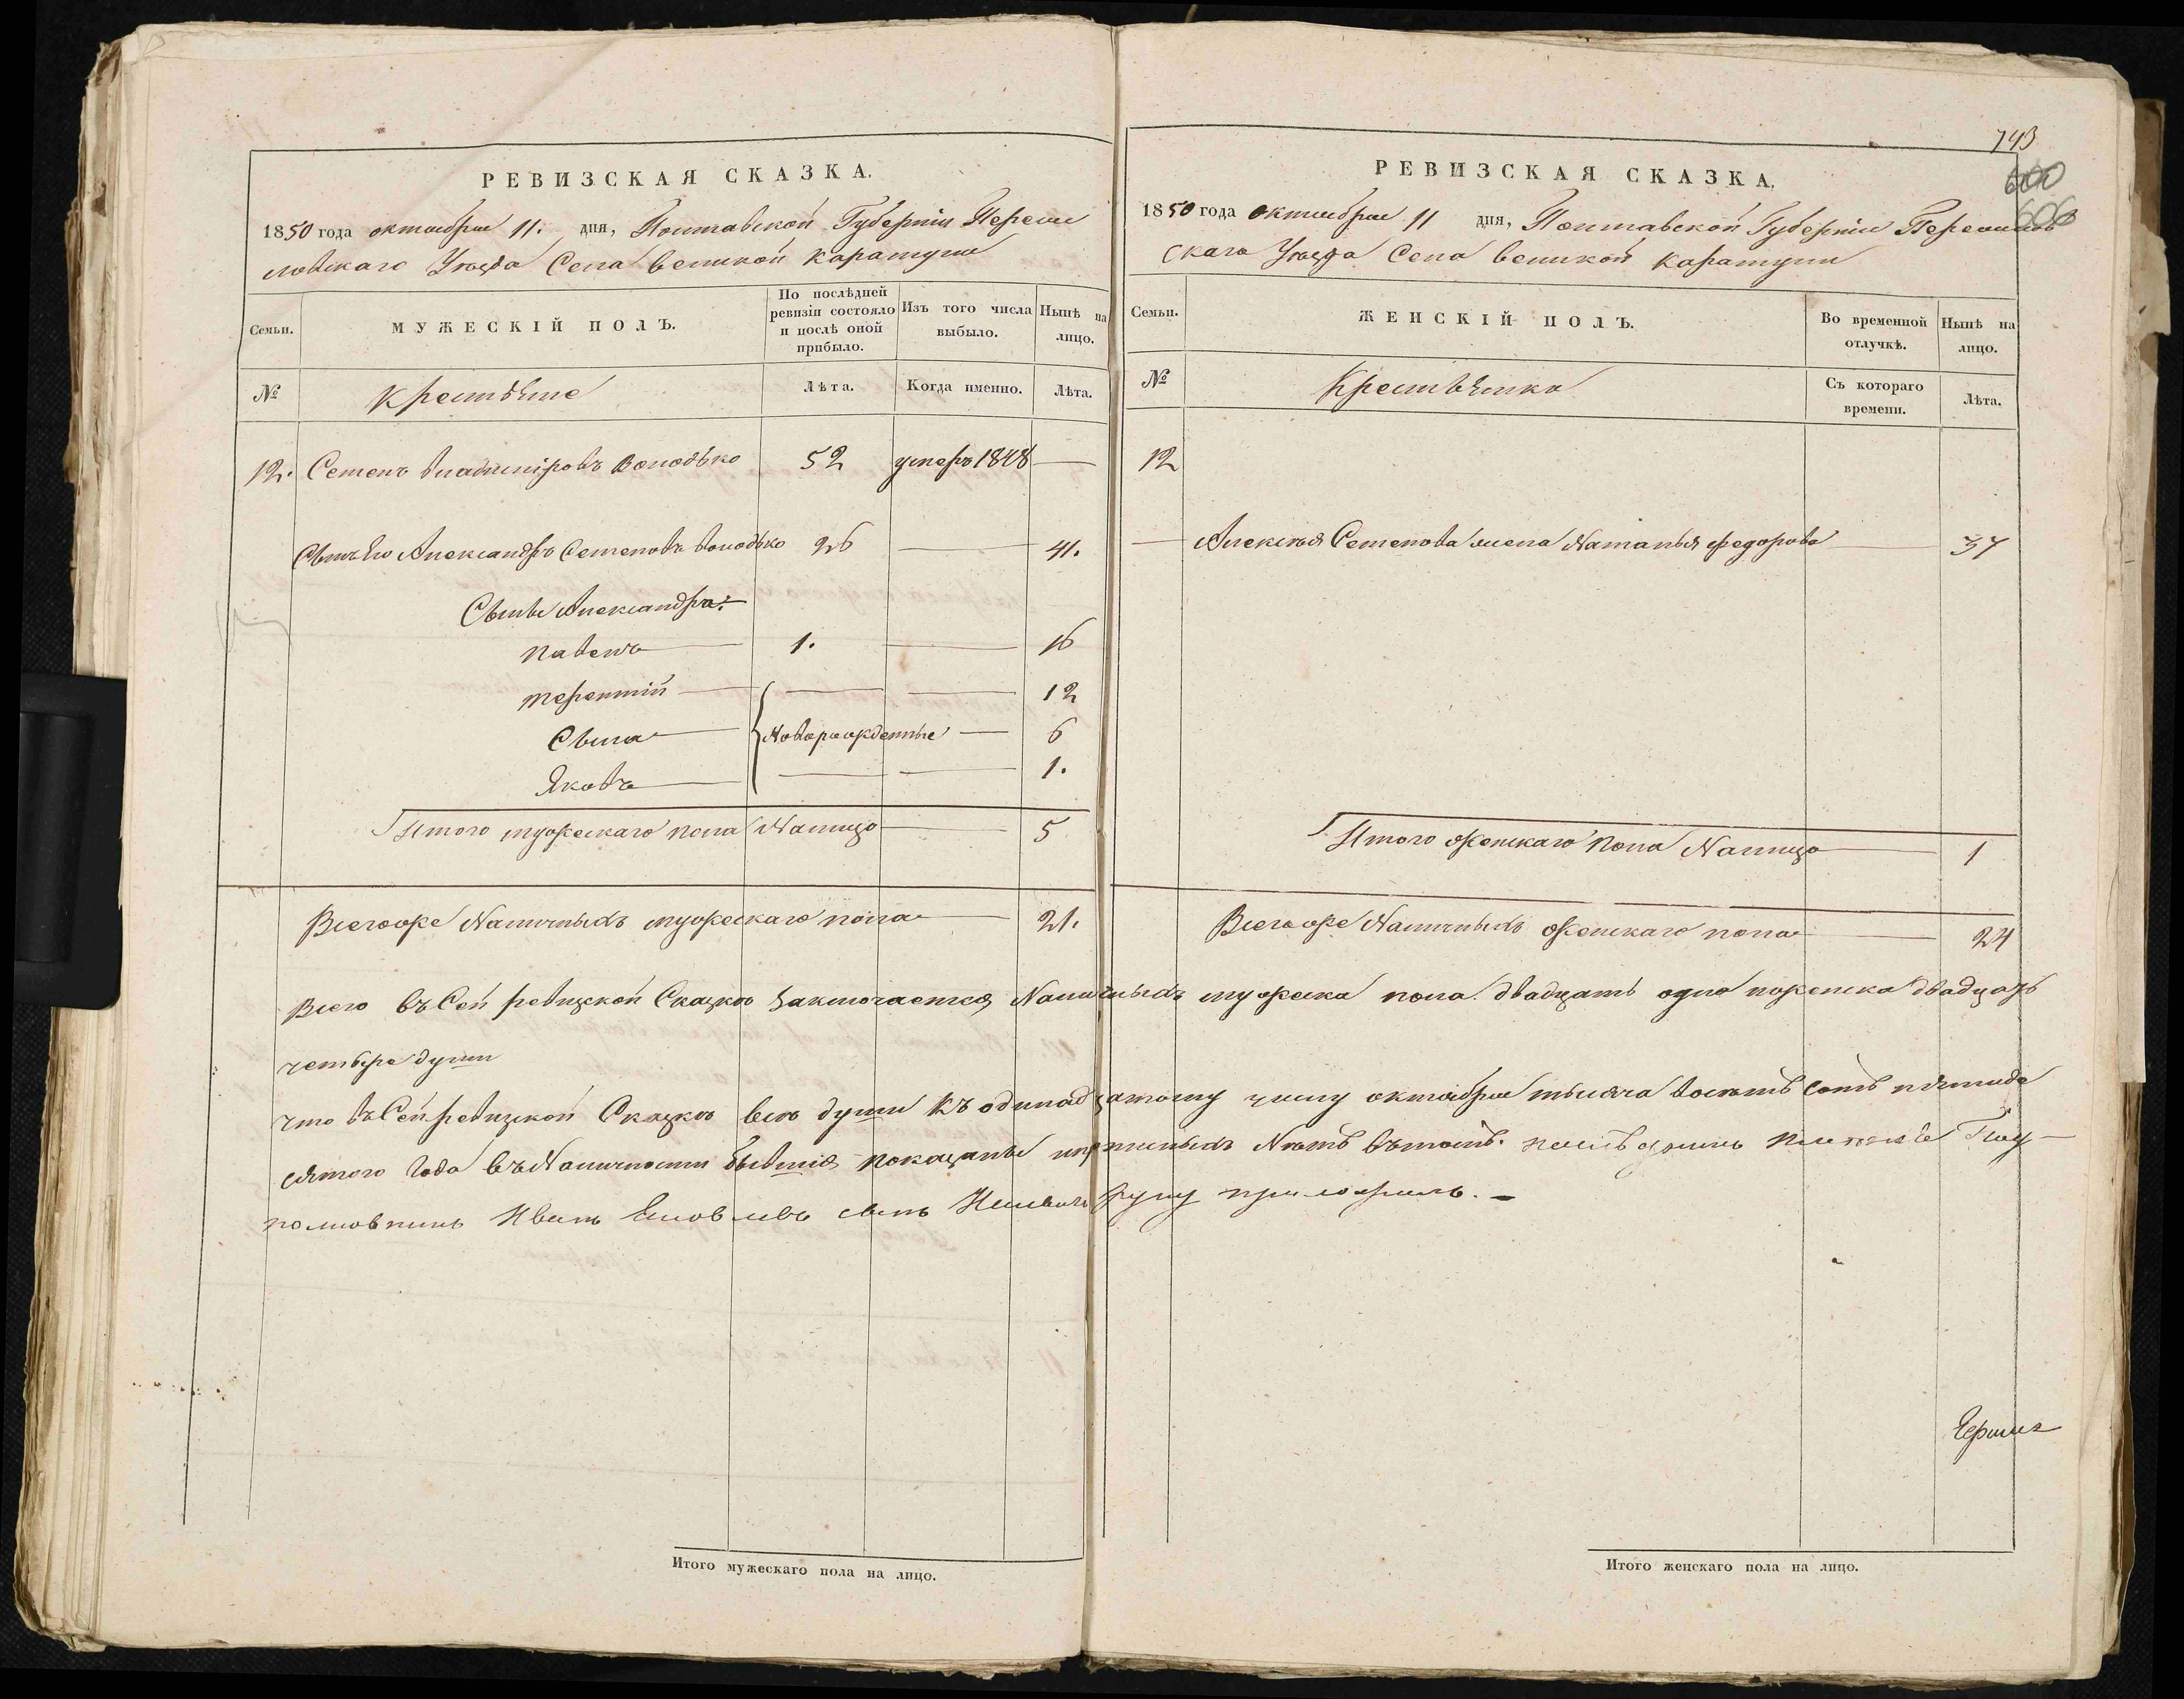 РЕВИЗСКАЯ СКАЗКА.
1850 года октября 11. дня, Полтавской Губерніи Переяс
ловскаго Уѣзда Села великой каратули
Семьи.
МУЖЕСКІЙ ПОЛЪ.
По послѣдней ревизіи состояло и послѣ оной прибыло.
Изъ того числа выбыло.
Нынѣ на лицо.
№
крестьяне
Лѣта.
Когда именно.
Лѣта.
12. Семенъ владиміровъ володько 52 умеръ 1848 —
Сынъ Его Александръ Семеновъ володько 26 — 41.
Сыны Александра:
павелъ — 1. — 16
терентій — — — 12
Сыла — Новорожденные — 6
Яковъ — — — 1.
Итого мужескаго пола Налицо — 5
Всегоже Наличныхъ мужескаго пола — 21.
743
600
606
РЕВИЗСКАЯ СКАЗКА.
1850 года октября 11 дня, Полтавской Губерніи Переяслов
скаго Уѣзда Села великой каратули
Семьи.
ЖЕНСКІЙ ПОЛЪ.
Во временной отлучкѣ.
Нынѣ на лицо.
№
Крестьянки
Съ котораго времени.
Лѣта.
12
— Семенова жена Наталья федорова — 37
Итого женскаго пола Налицо — 1
Всегоже Наличныхъ женскаго пола — 24
Всего въ Сей ревизкой Сказкѣ Заключается Наличныхъ мужеска пола двадцать одна иженска двадцать
четыре души
что въ Сей ревизкой Сказкѣ всѣ души къ одинадцатому числу октября тысяча восемь сотъ пятиде
сятого Года въ Наличности бывшія показаны ипрописныхъ Нѣтъ въ томъ
Иванъ сынъ руку приложилъ. —
Итого мужескаго пола на лицо.
Итого женскаго пола на лицо.